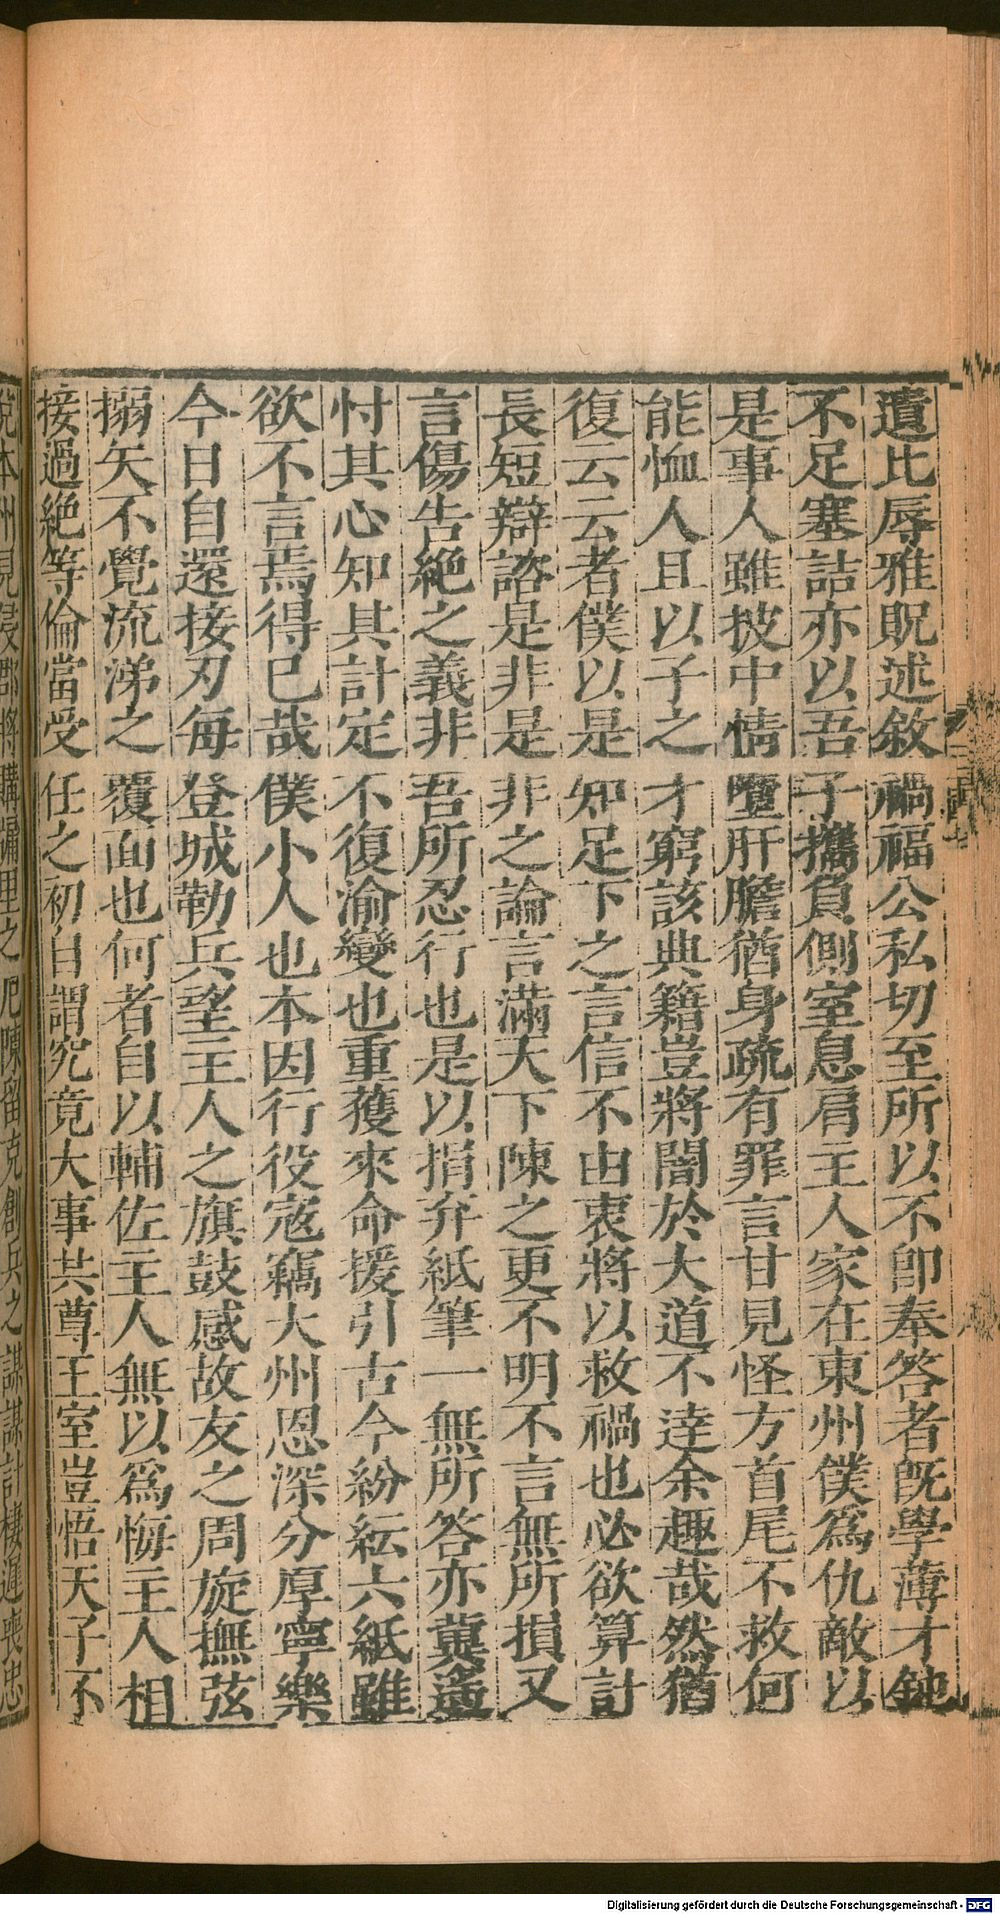 遺比辱雅貺述敘禍福公私切至所以不卽奉答者旣學薄才鈍
不足塞詰亦以吾子攜負側室息肩主人家在東州僕爲仇敵以
是事人雖披中情墮肝膽猶身疏有罪言甘見怪方首尾不救何
能恤人且以子之才窮該典籍豈將闇於大道不達余趣哉然猶
復云云者僕以是知足下之言信不由衷將以救禍也必欲算計
長短辯諮是非是非之論言滿天下陳之更不明不言無所損又
言傷告絕之義非吾所忍行也是以捐弃紙筆一無所答亦冀遙
忖其心知其計定不復渝變也重獲來命援引古今紛紜六紙雖
欲不言焉得已哉僕小人也本因行役寇竊大州恩深分厚寧樂
今日自還接刃每登城勒兵望主人之旗鼓感故友之周旋撫弦
搦矢不覺流涕之覆面也何者自以輔佐主人無以爲悔主人相
接過絕等倫當受任之初自謂究竟大事共尊王室豈悟天子不
本州見侵郡將購牖里之厄陳留克創兵之謀謀計棲遲喪忠
Digitalisierung gefördert durch die Deutsche Forschungsgemeinschaft - DFG